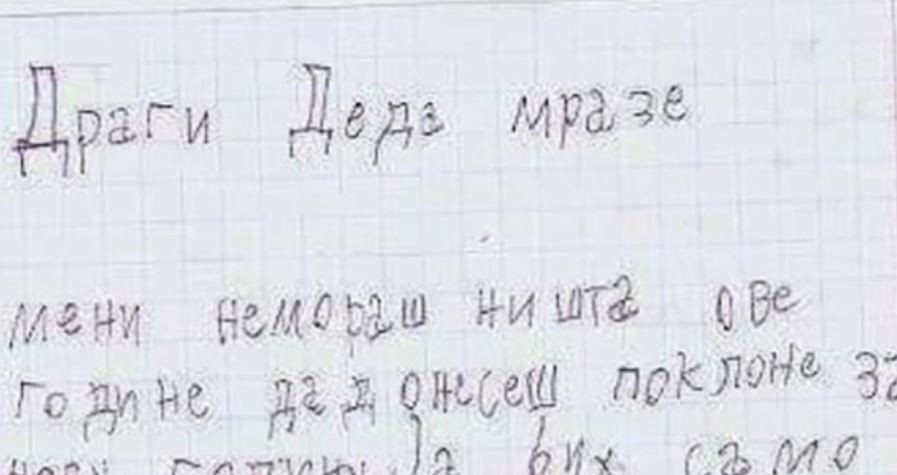 Драги Деда мразе
мени немораш ништа ове
године да донесеш поклоне за
Ја бих само